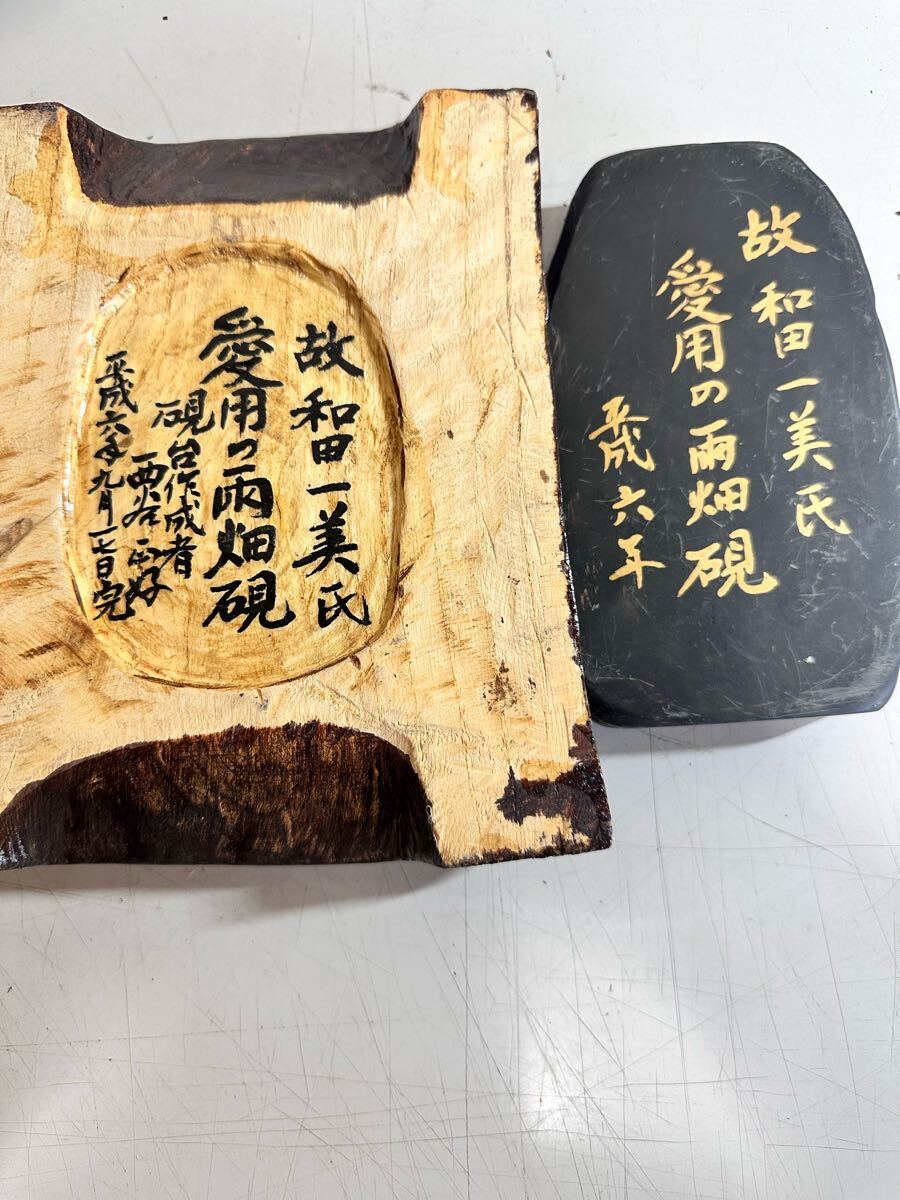 故 和田一美氏
愛用の雨畑硯
硯台作成者
西谷 正好
平成六年九月一七日完
故 和田一美氏
愛用の雨畑硯
平成六年